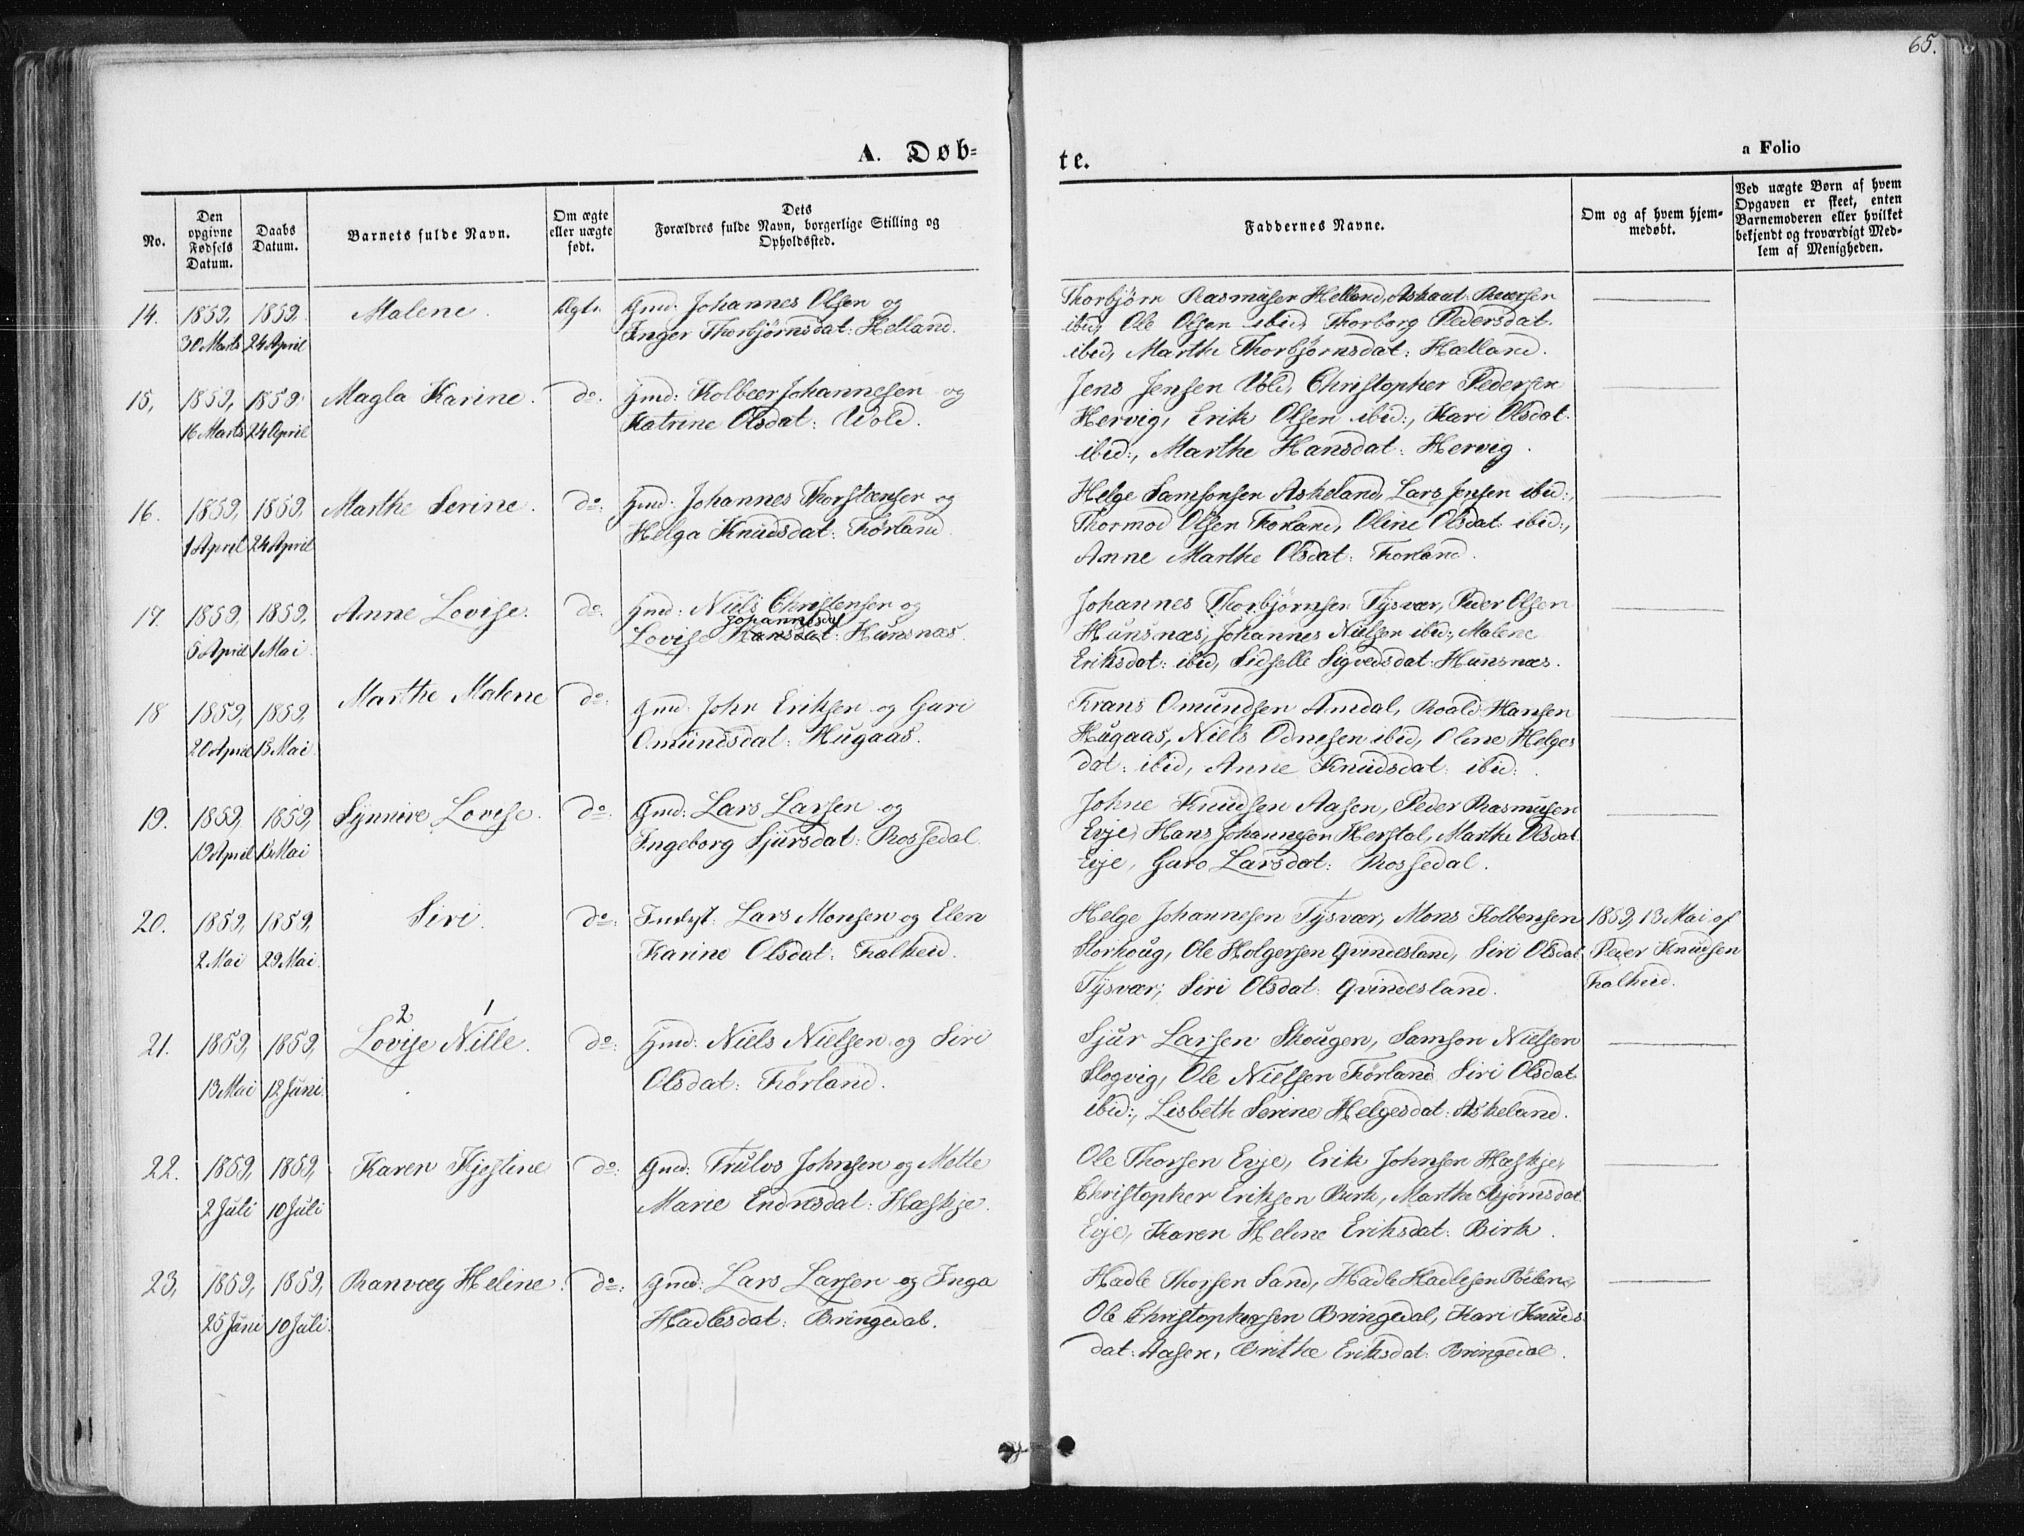 65.
A. Døb=
te.
a Folio
No.
Den opgivne Fødsels Datum.
Daabs Datum.
Barnets fulde Navn.
Om ægte eller uægte født.
Dets Forældres fulde Navn, borgerlige Stilling og Opholdssted.
Faddernes Navne.
Om og af hvem hjemmedøbt.
Ved uægte Børn af hvem Opgaven er skeet, enten Barnemoderen eller hvilket bekjendt og troværdigt Medlem af Menigheden.
14. 1859, 1859. Malene. Ægte. Gmd: Johannes Olsen og
30 Marts 24 April Inger Thorbjørnsdat: Helland.
Thorbjørn Rasmusen Helland,
ibid, Ole Olsen ibid, Thorborg Pedersdat.
ibid, Marthe Thorbjørnsdat: Hælland.
15, 1859, 1859 Magla Karine. do: Gmd: Kolbeer Johannesen og
16 Marts 24 April Katrine Olsdat: Wold.
Jens Jensen Vold, Christopher Pedersen
Hervig, Erik Olsen ibid:, Kari Olsdat.
ibid:, Marthe Hansdat: Hervig.
16. 1859, 1859, Marthe Serine. do: Gmd: Johannes Thorstensen og
1 April 24 April Helga Knudsdat: Førland.
Helge Samsonsen Askeland, Lars Jensen ibid:,
Thormod Olsen Førland, Oline Olsdat ibid:,
Anne Marthe Olsdat: Førland.
17. 1859, 1859, Anne Lovise. do: Gmd: Niels Christensen og
Johannesdat
5 April 1 Mai. Lovise Hansdat: Hunsnæs.
Johannes Thorbjørnsen Tysvær, Peder Olsen
Hunsnæs, Johannes Nielsen ibid:, Malene
Eriksdat: ibid, Sidselle Sigvedsdat: Hunsnæs.
18 1859, 1859, Marthe Malene do: Gmd: John Eriksen og Guri
20 April 15 Mai Omundsdat: Hugaas.
Frans Omundsen Amdal, Roald Hansen
Hugaas, Niels Odnesen ibid, Oline Helges
dat: ibid, Anne Knudsdat: ibid:.
19. 1859, 1859, Synnive Lovise. do: Gmd: Lars Larsen og
19 April 15 Mai Ingeborg Sjursdat: Rossedal.
Johne Knudsen Aasen, Peder Rasmusen
Evje, Hans Johannesen Herstal, Marthe Olsdat
Evje, Guro Larsdat: Rossedal.
20. 1859, 1859, Siri. do: Inderst: Lars Monsen og Elen
2 Mai 29 Mai. Karine Olsdat: Falheid.
Helge Johannesen Tysvær, Mons Kolbensen
Storhoug, Ole Holgersen Qvindesland, Siri Olsdat
Tysvær, Siri Olsdat: Qvindesland.
1859, 13 Mai af
Peder Knudsen
Falheid.
2 1
21. 1859, 1859, Lovise Nille. do: Gmd: Niels Nielsen og Siri
13 Mai 12 Juni. Olsdat: Førland.
Sjur Larsen Skougen, Samson Nielsen
Slogvig, Ole Nielsen Førland, Siri Olsdat
ibid:, Lisbeth Serine Helgesdat: Askeland.
22. 1859, 1859, Karen Kjestine do: Gmd: Truls Johnsen og Mette
2 Juli 10 Juli Marie Endresdat: Hæskje.
Ole Thorsen Evje, Erik Johnsen Hæskje,
Christopher Eriksen Birk, Marthe Bjørnsdat
Evje, Karen Helene Eriksdat: Birk.
23, 1859, 1859, Ranvæg Heline. do: Gmd: Lars Larsen og Inga
25 Juni 10 Juli. Hadlesdat: Bringedal.
Hadle Thorsen Sand, Hadle Hadlesen
Ole Christophersen Bringedal, Kari Knuds
dat: Aasen, Brithe Eriksdat: Bringedal.